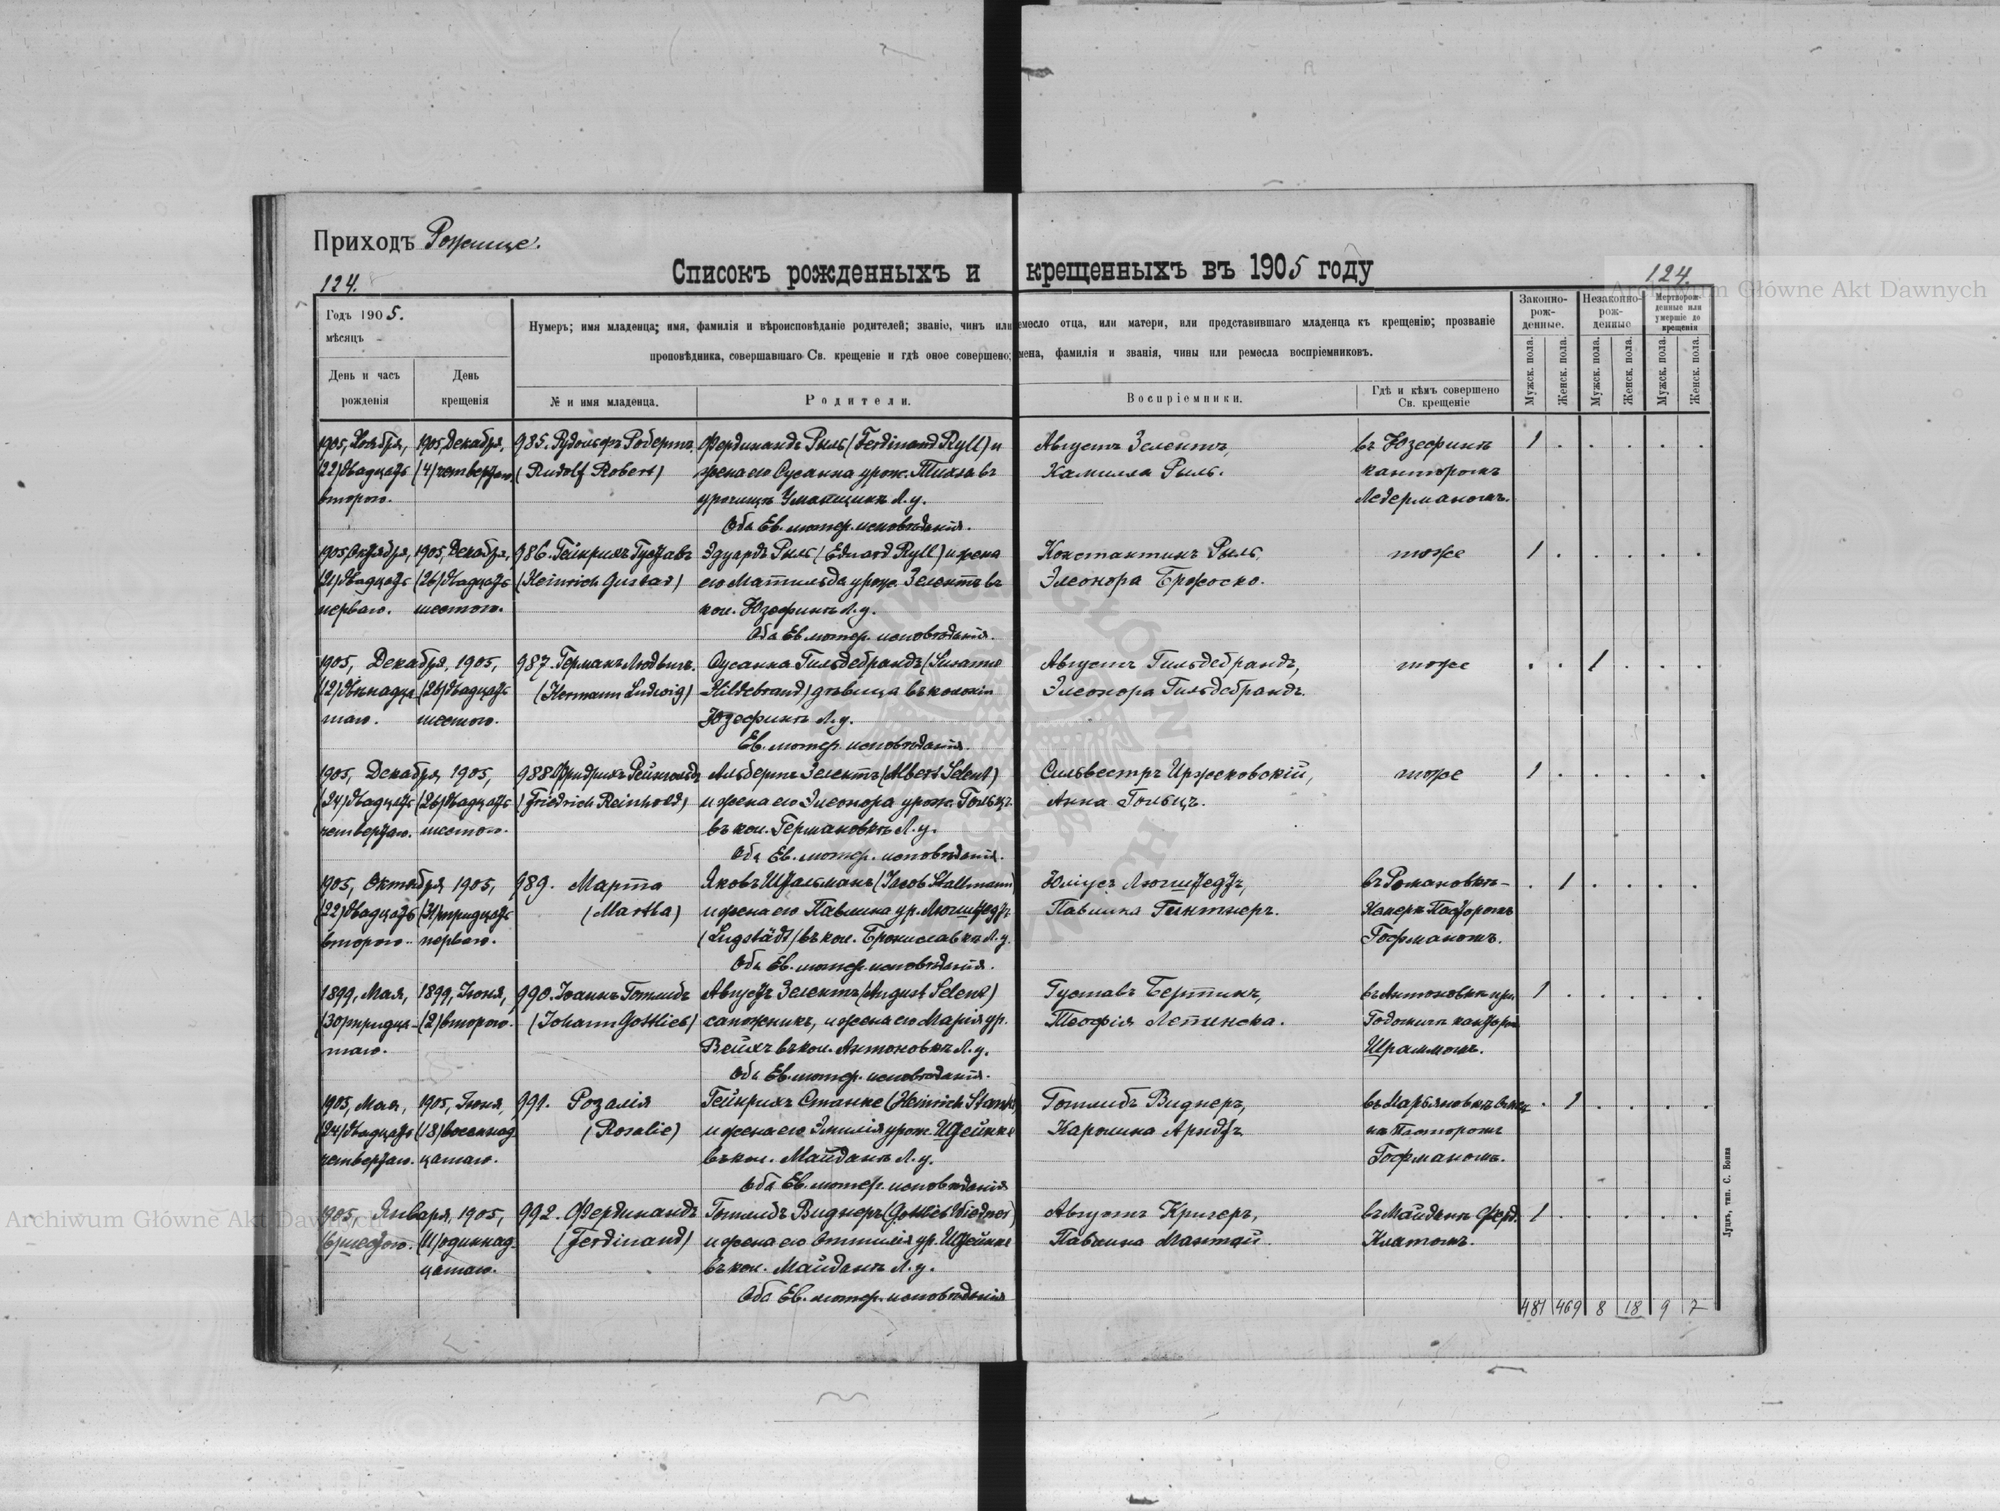 Приходъ Рожище.
124.
Списокъ рожденныхъ и крещенныхъ въ 1905 году
124.
Archiwum Główne Akt Dawnych
Годъ 1905.
мѣсяцъ
День и часъ рожденія
День крещенія
Нумеръ; имя младенца; имя, фамилія и вѣроисповѣданіе родителей; званіе, чинъ или ремесло отца, или матери, или представившаго младенца къ крещенію; прозваніе
проповѣдника, совершавшаго Св. крещеніе и гдѣ оное совершено; имена, фамилія и званія, чины или ремесла воспріемниковъ.
№ и имя младенца.
Родители.
Воспріемники.
Гдѣ и кѣмъ совершено Св. крещеніе
Законно-рож-денные.
Незаконно-рож-денные
Мертворож-денные или умершіе до крещенія
Мужск. пола.
Женск. пола.
Мужск. пола.
Женск. пола.
Мужск. пола.
Женск. пола.
1905, Ноября, 1905, Декабря, 985. Рудольфъ Робертъ. Фердинандъ Рыль (Ferdinand Ryll) и Августъ Зелентъ, въ Юзефинѣ 1 . . . . .
(22) двадцать (4) четвертаго. (Rudolf Robert) жена его Сусанна урож. Тихла въ Камилла Рыль. канторомъ
второго. урочищѣ Уманщинѣ Л. у. Ледерманомъ.
Оба Ев. лютер. исповѣданія.
1905, Октября, 1905, Декабря, 986. Гейнрихъ Густавъ Эдуардъ Рыль (Eduard Ryll) и жена Константинъ Рыль, тоже 1 . . . . .
(21) двадцать (26) двадцать (Heinrich Gustav) его Матильда урож. Зелентъ въ Элеонора Брожоско.
перваго. шестого. кол. Юзефинѣ Л. у.
Оба Ев. лютер. исповѣданія.
1905, Декабря, 1905, 987. Германъ Людвигъ. Сусанна Гильдебрандъ (Susanne Августъ Гильдебрандъ, тоже . . 1 . . .
(12) двѣнадца- (26) двадцать (Hermann Ludwig) Hildebrand) дѣвица въ колоніи Элеонора Гильдебрандъ.
таго. шестого. Юзефинѣ Л. у.
Ев. лютер. исповѣданія.
1905, Декабря, 1905, 988. Фридрихъ Рейнгольдъ Альбертъ Зелентъ (Albert Selent) Сильвестръ Иржековскій, тоже 1 . . . . .
(24) двадцать (26) двадцать (Friedrich Reinhold) и жена его Элеонора урож. Гольцъ Анна Гольцъ.
четвертаго. шестого. въ кол. Германовкѣ Л. у.
Оба Ев. лютер. исповѣданія.
1905, Октября, 1905, 989. Марта Яковъ Штальманъ (Jacob Stallmann) Юліусъ Люгштедтъ, въ Романовкѣ- . 1 . . . .
(22) двадцать (31) тридцать (Martha) и жена его Павлина ур. Люгштедтъ Павлина Гентнеръ. Пасторомъ
второго. перваго. (Lugstädt) въ кол. Брониславкѣ Л. у. Гофманомъ.
Оба Ев. лютер. исповѣданія.
1899, Мая, 1899, Іюня, 990. Іоаннъ Готлибъ Августъ Зелентъ (August Selent) Густавъ Бертинъ, въ Антоновкѣ при 1 . . . . .
(30) тридца- (2) второго. (Johann Gottlieb) сапожникъ, и жена его Марія ур. Теофія Летинска. канторомъ
таго. Вейхъ въ кол. Антоновкѣ Л. у. Шраммомъ.
Оба Ев. лютер. исповѣданія.
1905, Мая, 1905, Іюня, 991. Розалія Гейнрихъ Станке (Heinrich Stanke) Готлибъ Виднеръ, въ Марьяновкѣ . 1 . . . .
(24) двадцать (18) восемнад- (Rosalie) и жена его Эмилія урож. Штейнке Каролина Арндтъ Пасторомъ
четвертаго. цатаго. въ кол. Майданѣ Л. у. Гофманомъ.
Оба Ев. лютер. исповѣданія
1905, Января, 1905, 992. Фердинандъ Готлибъ Виднеръ (Gottlieb Wiedner) Августъ Кригеръ, въ Майданѣ Ферд. 1 . . . . .
(6) шестого. (11) одиннад- (Ferdinand) и жена его Оттилія ур. Штейнке Павлина Мантай. Клаттомъ.
цатаго. въ кол. Майданѣ Л. у.
Оба Ев. лютер. исповѣданія
481 469 8 18 9 7
Луцкъ, тип. С. Бонка
Archiwum Główne Akt Dawnych